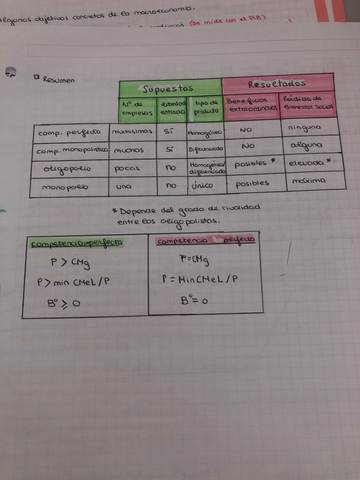 Algunos objetivos concretos de la macroeconomía.
(se mide con el PIB)
Resumen
Supuestos Resultados
Nº de empresas Libertad entrada tipo de producto Beneficios extraordinarios Pérdida de Bienestar Social
comp. perfecta muchísimas Sí Homogéneo NO ninguna
comp. monopolística muchas Sí Diferenciado NO alguna
oligopolio pocas no Homogéneo/diferenciado posibles * elevada *
monopolio una no único posibles máxima
* Depende del grado de rivalidad
entre los oligopolistas.
competencia imperfecta competencia perfecta
P > CMg P = CMg
P > min CMeL/P P = Min CMeL/P
Bº ≥ 0 Bº = 0